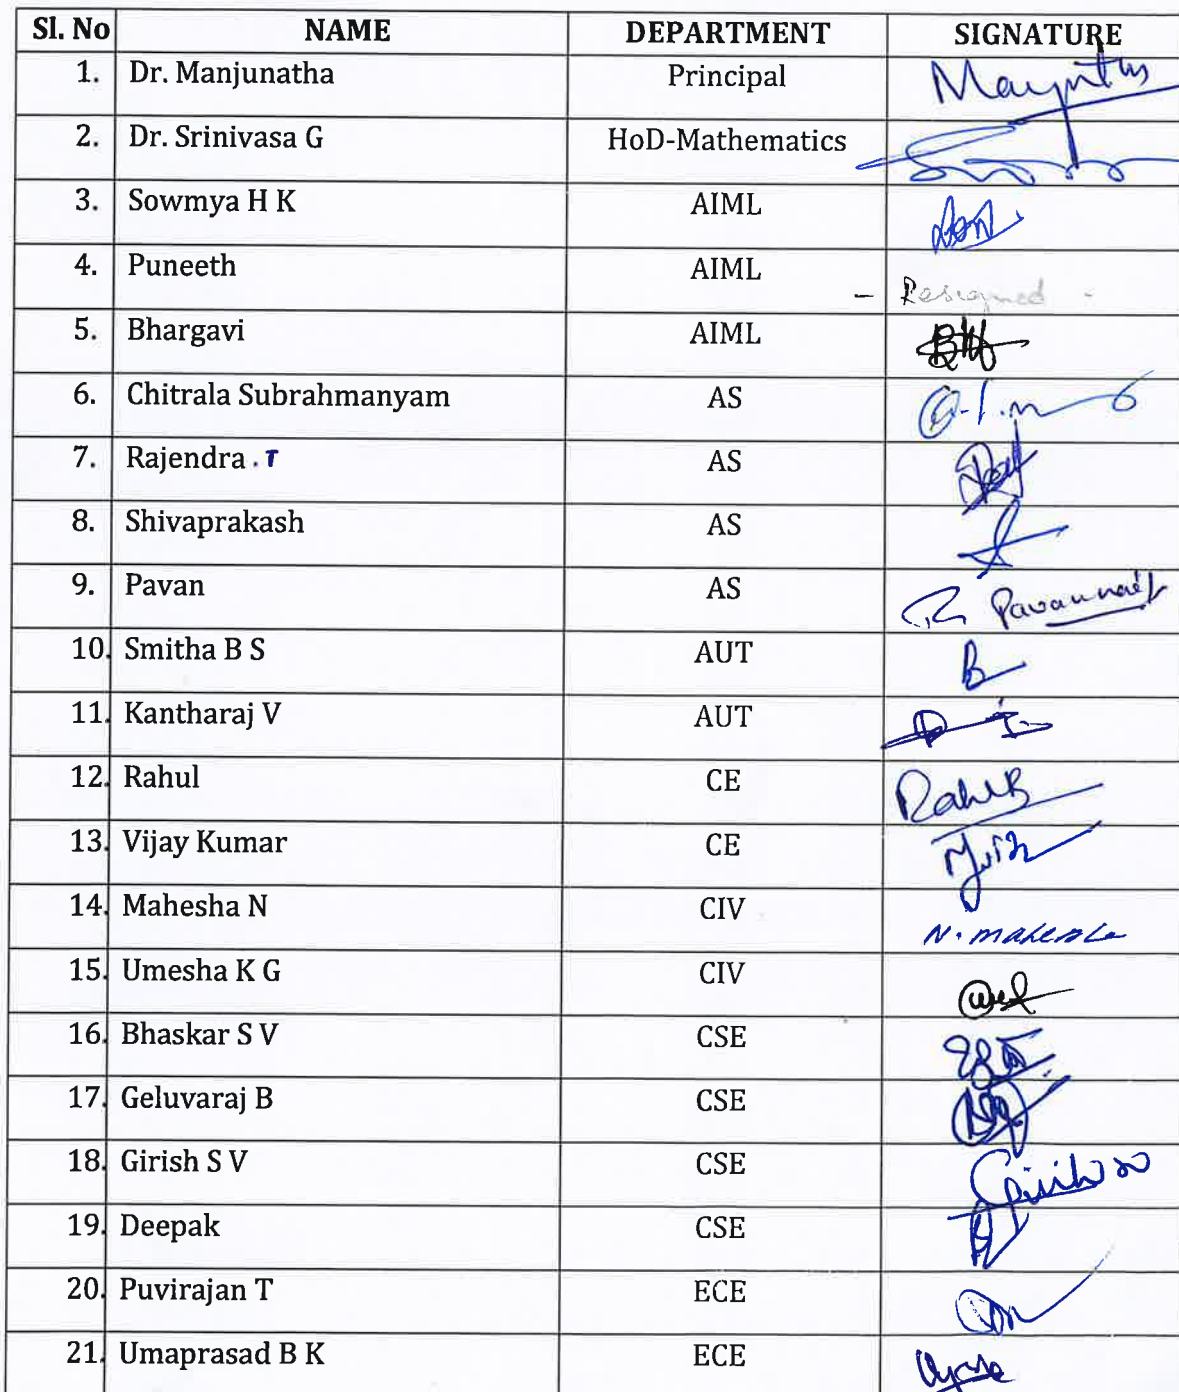 Sl. No NAME DEPARTMENT SIGNATURE
1. Dr. Manjunatha Principal
2. Dr. Srinivasa G HoD-Mathematics
3. Sowmya H K AIML
4. Puneeth AIML - Resigned -
5. Bhargavi AIML
6. Chitrala Subrahmanyam AS
7. Rajendra . T AS
8. Shivaprakash AS
9. Pavan AS
10. Smitha B S AUT
11. Kantharaj V AUT
12. Rahul CE
13. Vijay Kumar CE
14. Mahesha N CIV
15. Umesha K G CIV
16. Bhaskar S V CSE
17. Geluvaraj B CSE
18. Girish S V CSE
19. Deepak CSE
20. Puvirajan T ECE
21. Umaprasad B K ECE